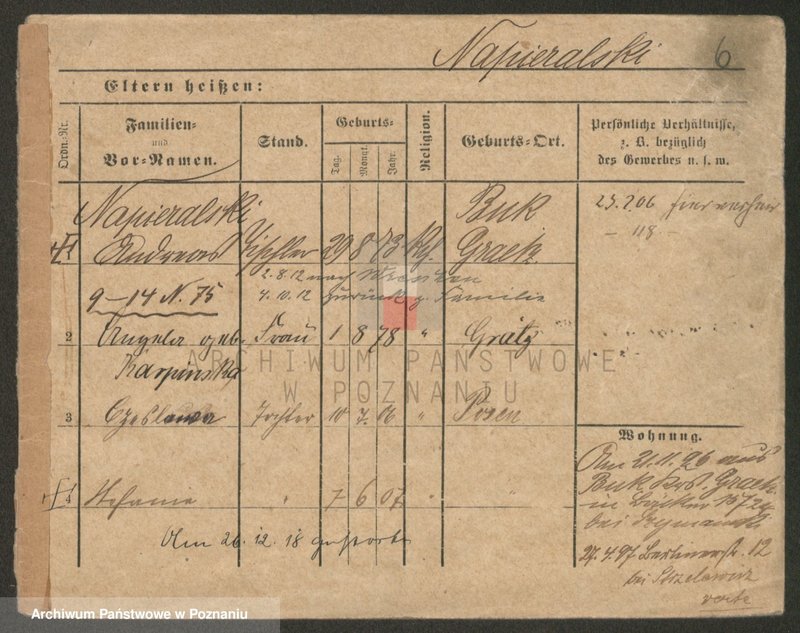 Napieralski 6
Eltern heißen:
Ordn.-Nr.
Familien-
und
Vor-Namen.
Stand.
Geburts-
Tag.
Monat.
Jahr.
Religion.
Geburts-Ort.
Persönliche Verhältnisse,
z. B. bezüglich
des Gewerbes u. s. w.
Napieralski Buk
1 Andreas Tischler 29 8 73 Kth. Graetz
25.7.06
- 118 -
2.8.12 nach Wreschen
9-14 N. 75
4.10.12 zurück z. Familie
2 Angela geb. Frau 1 8 78 " Grätz
Karpinska
3 Czeslawa Tochter 10 7. 06 " Posen
4 Stefanie " 7 6 07 " "
Am 26.12.18 gestorben
Wohnung.
Am 21.11.96 aus
Buk Krs. Graetz
bei Szymanski
27.4.97 Berlinerstr. 12
bei Strzelewicz
ARCHIWUM PAŃSTWOWE
W POZNANIU
Archiwum Państwowe w Poznaniu